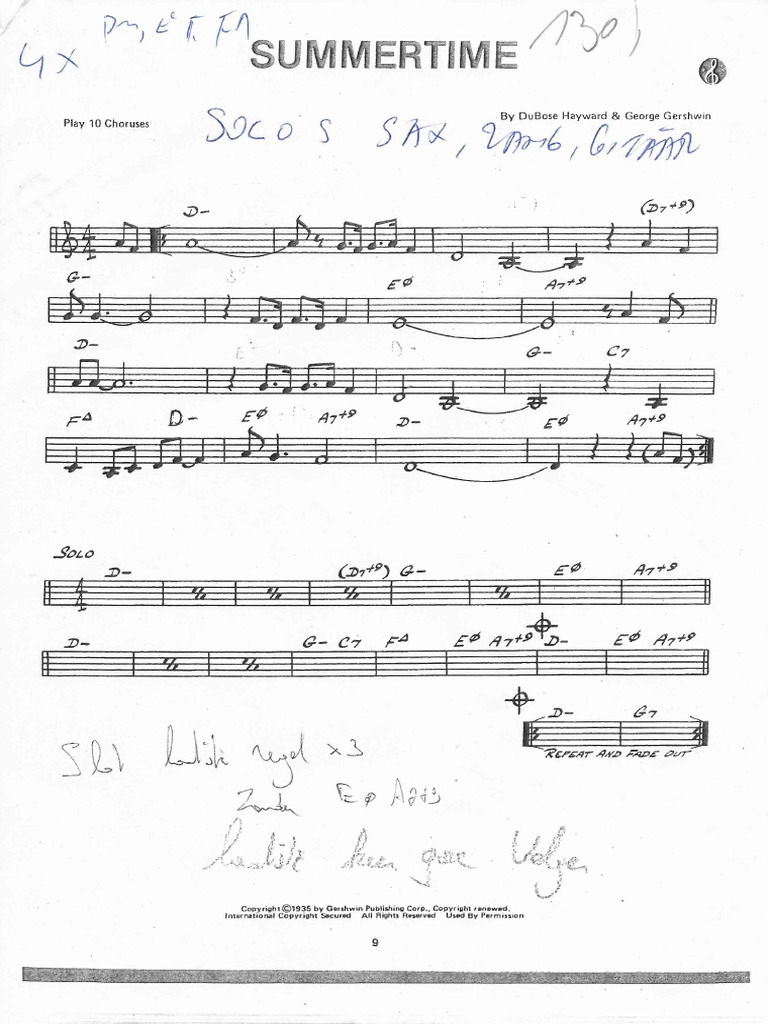 4x
SUMMERTIME
130
Play 10 Choruses
By DuBose Hayward & George Gershwin
SOLO S SAX, ZANG, GITAAR
D- (D7+9)
G- EØ A7+9
D- G- C7
FΔ D- EØ A7+9 D- EØ A7+9
SOLO
D- (D7+9) G- EØ A7+9
D- G- C7 FΔ EØ A7+9 D- EØ A7+9
D- G7
REPEAT AND FADE OUT
Slot laatste regel x3
Zonder EØ A7+9
laatste keer geen
Copyright ©1935 by Gershwin Publishing Corp., Copyright renewed.
International Copyright Secured All Rights Reserved Used By Permission
9